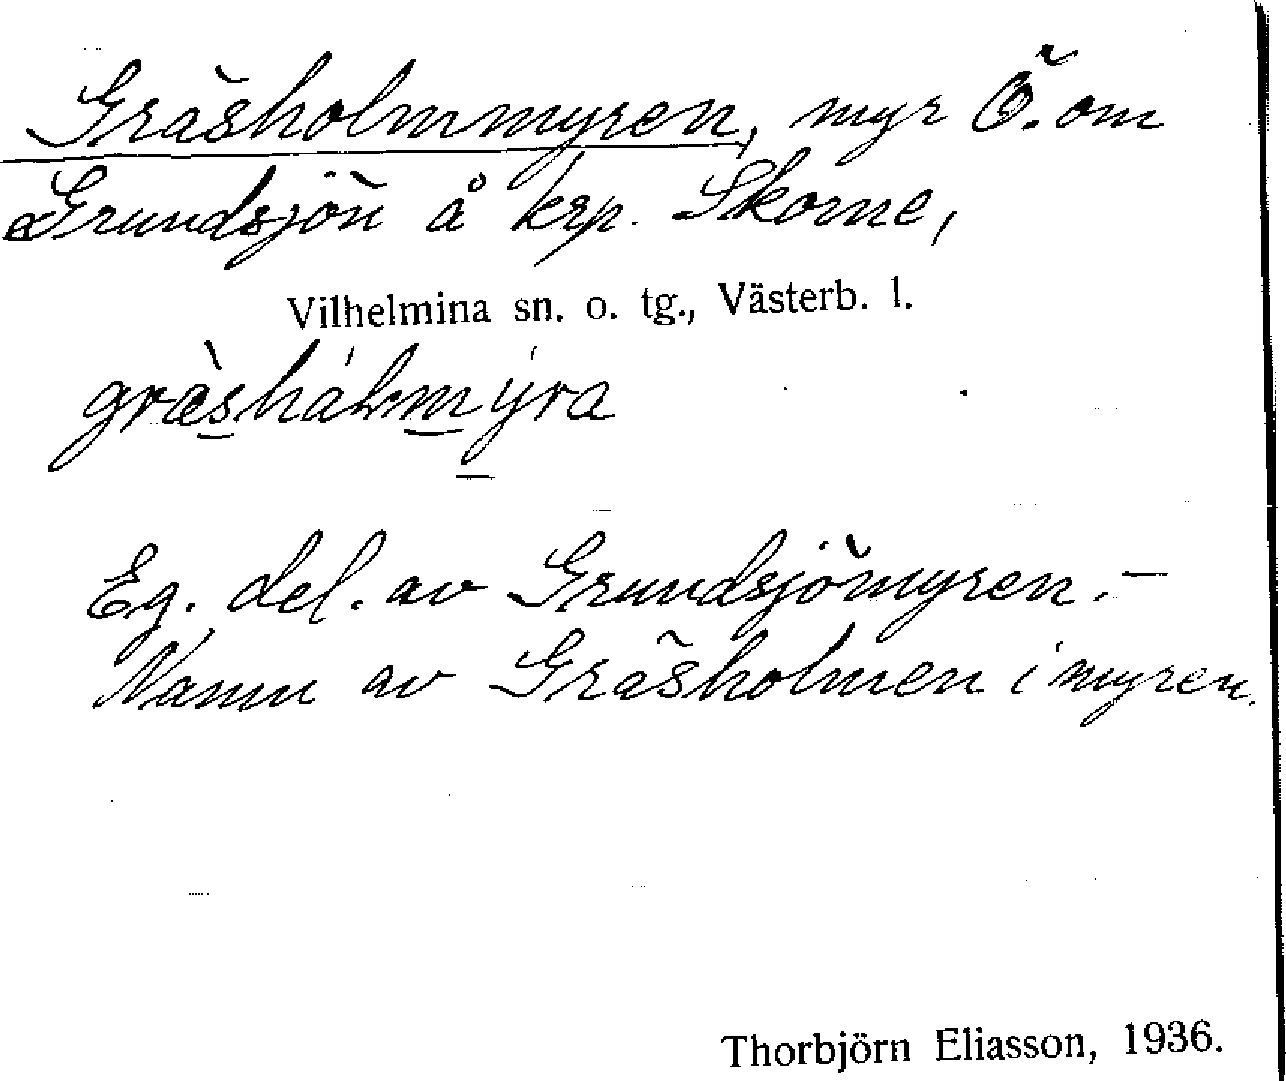 Gräsholmmyren, myr Ö. om
Grundsjön å krp. Skorne,
Vilhelmina sn. o. tg., Västerb. l.
Eg. del. av Grundsjömyren. –
Namn av Gräsholmen i myren.
Thorbjörn Eliasson, 1936.